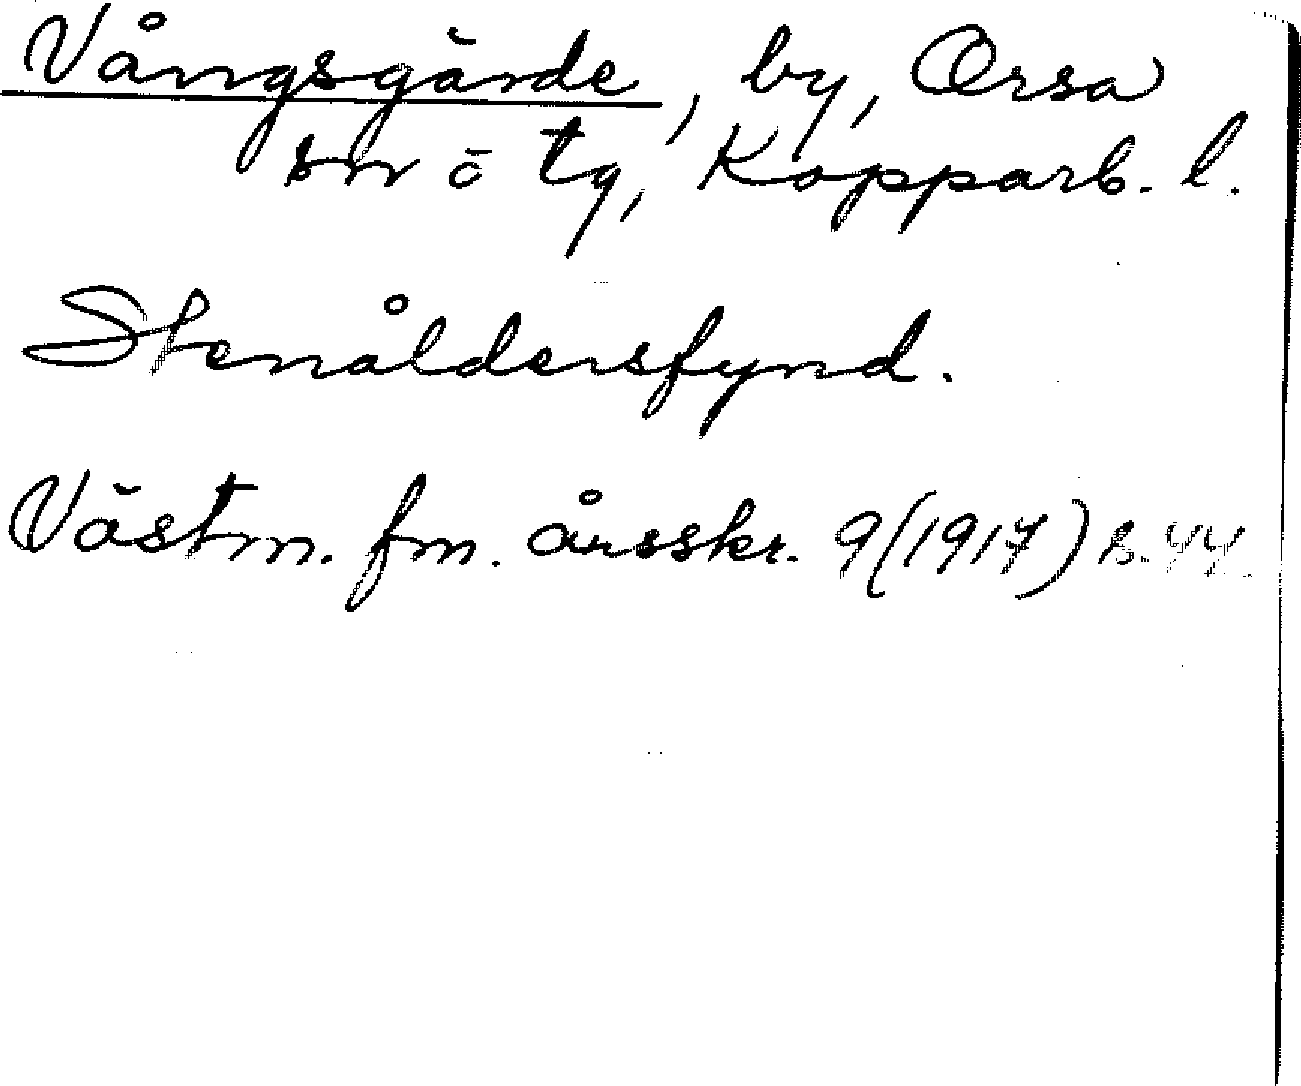 Vångsgärde, by, Orsa
sn o tg, Kopparb. l.
Stenåldersfynd.
Västm. fm. årsskr. 9(1917) s. 44.